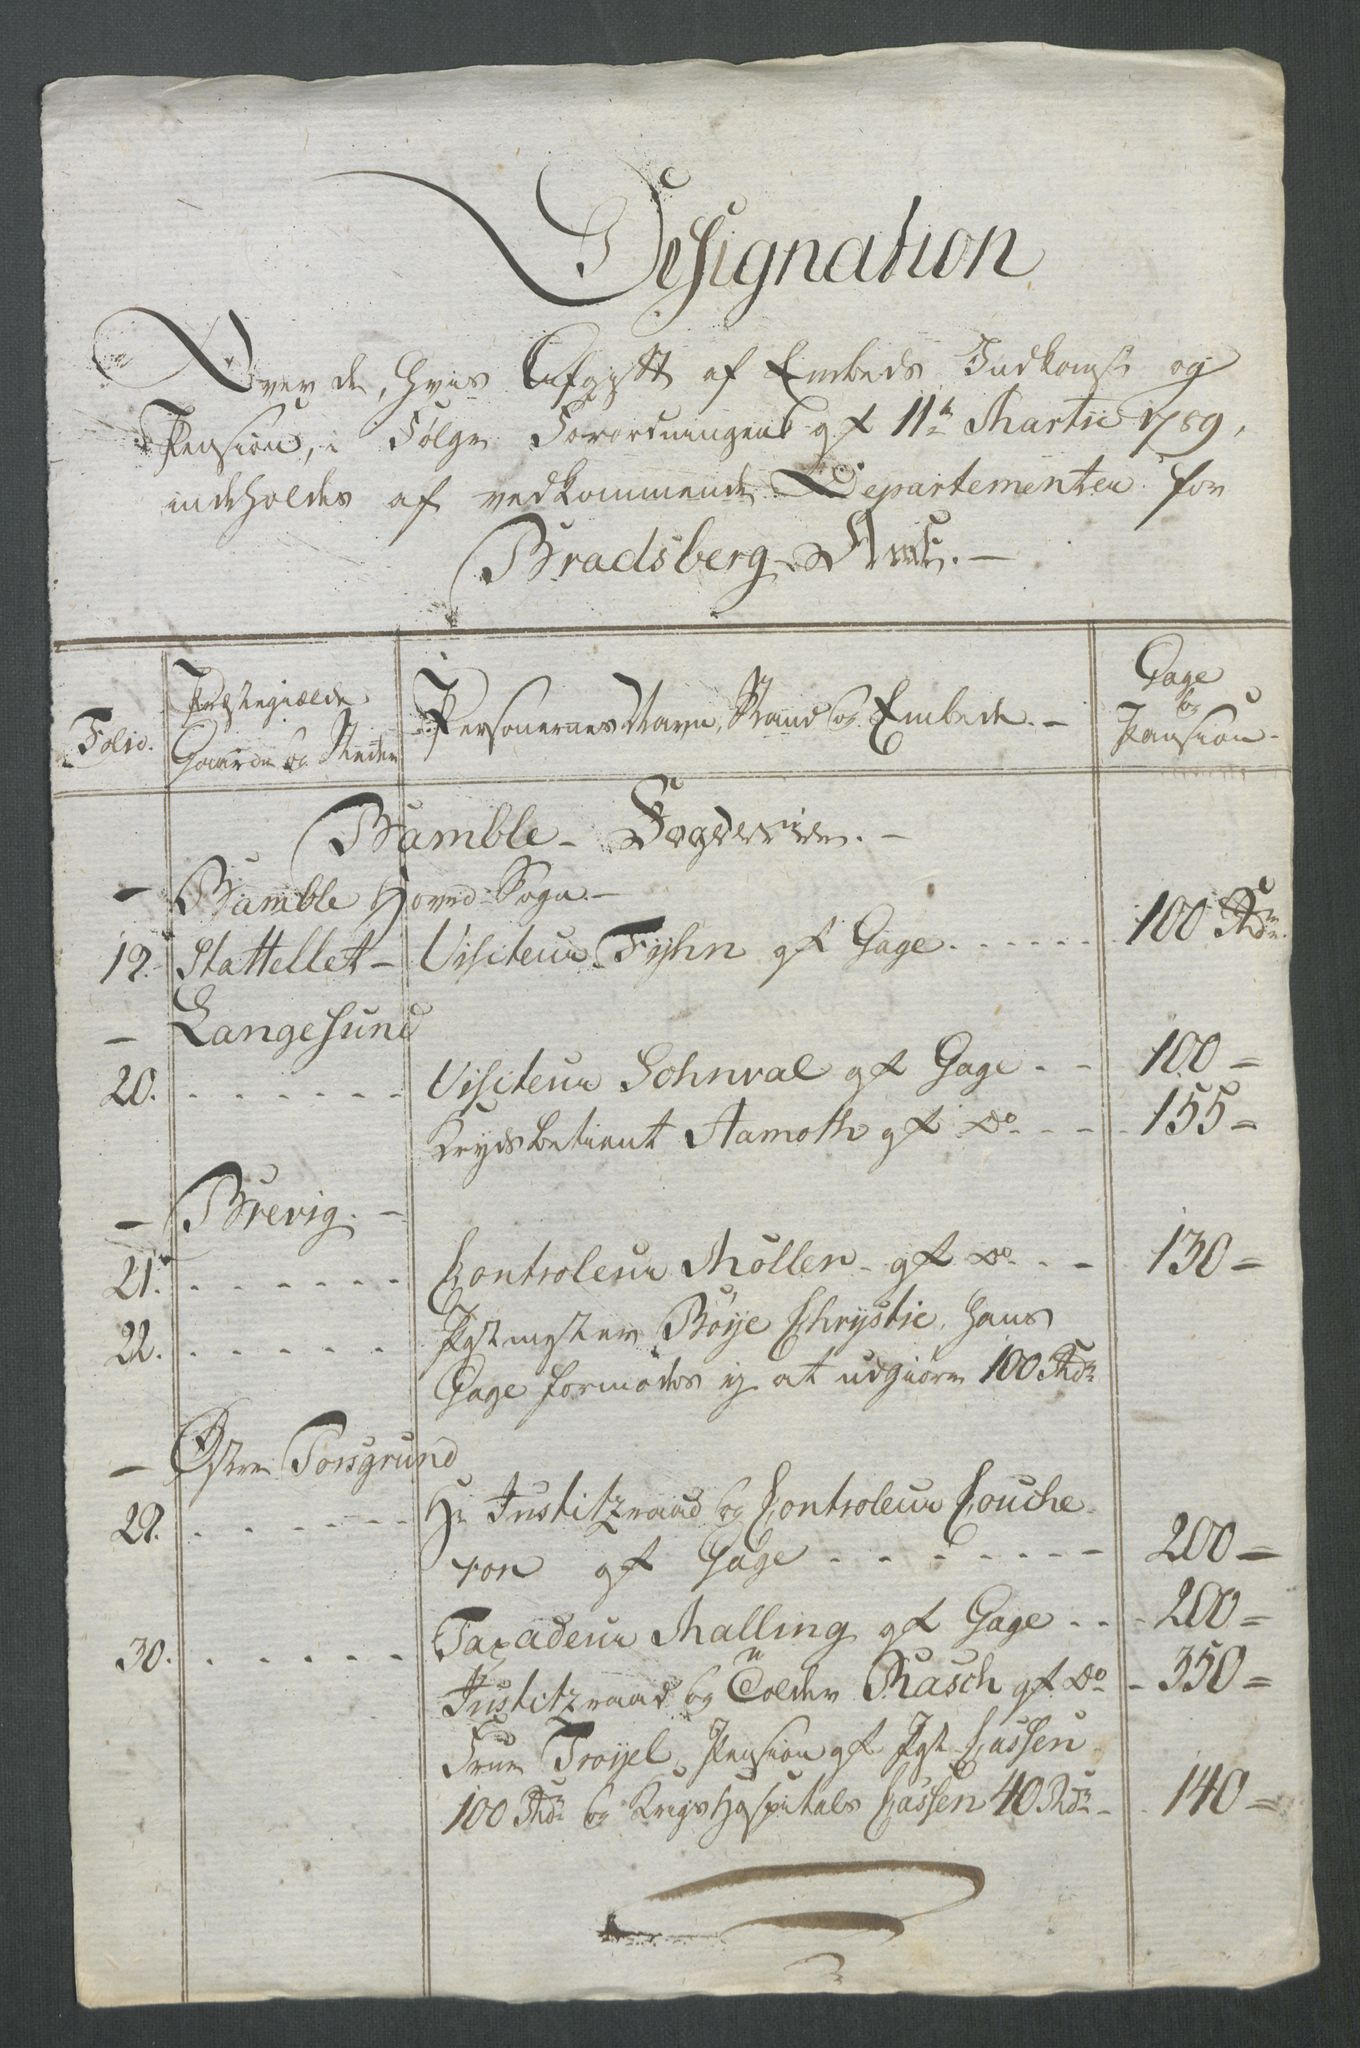 Designation
Over de, hvis Afgift af Embeds Indkomst og
Pension, i Følge Forordningens af 11te Martii 1789,
indeholdes af vedkommende Departementer for
Bradsberg Amt. —
Folio.
Præstegiælde
Gaarde og Steder
Personernes Navn, Stand og Embede. —
Gage
og
Pansion —
Bamble – Fogderie. —
— Bamble Hoved-Sogn. —
19. Stattellet — Visiteur Fishn af Gage. . . . . . 100 Rdr.
— Langesund
20. . . . . . . Visiteur Sohnval af Gage . — 100 =
Krydsbetient Aamoth af do — . . . 155 =
— Brevig. —
21. . . . . . . Controleur Møller — af do . . — 130 =
22. . . . . . Postmester Böye Chrystie, hans
Gage formodes ej at udgiøre 100 Rdr
— Østre Porsgrund
29. . . . . . Hr Justitzraad og Controleur Couche-
ron af Gage . . . . . . . — 200 =
Taxadeur Malling af Gage . . . 200 =
30. . . . . . Justitzraad og Tolder Rasch af do . 350 =
Frue Troyel, Pension af Post Cassen
100 Rdr og Krigs Hospitals Cassen 40 Rdr — . 140 =